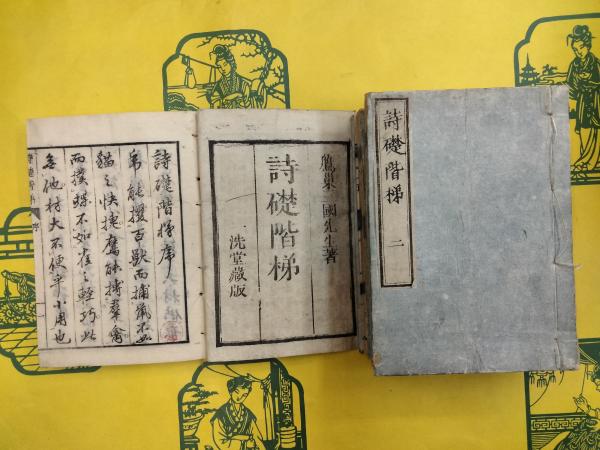 詩礎階梯序
帍能攫百獸而捕鼠不如
貓之快捷鷹能搏羣禽
而撲蝶不如雀之輕巧此
無他材大不便乎小用也
鷹巢 國先生著
詩礎階梯
一洗堂藏版
詩礎階梯 二